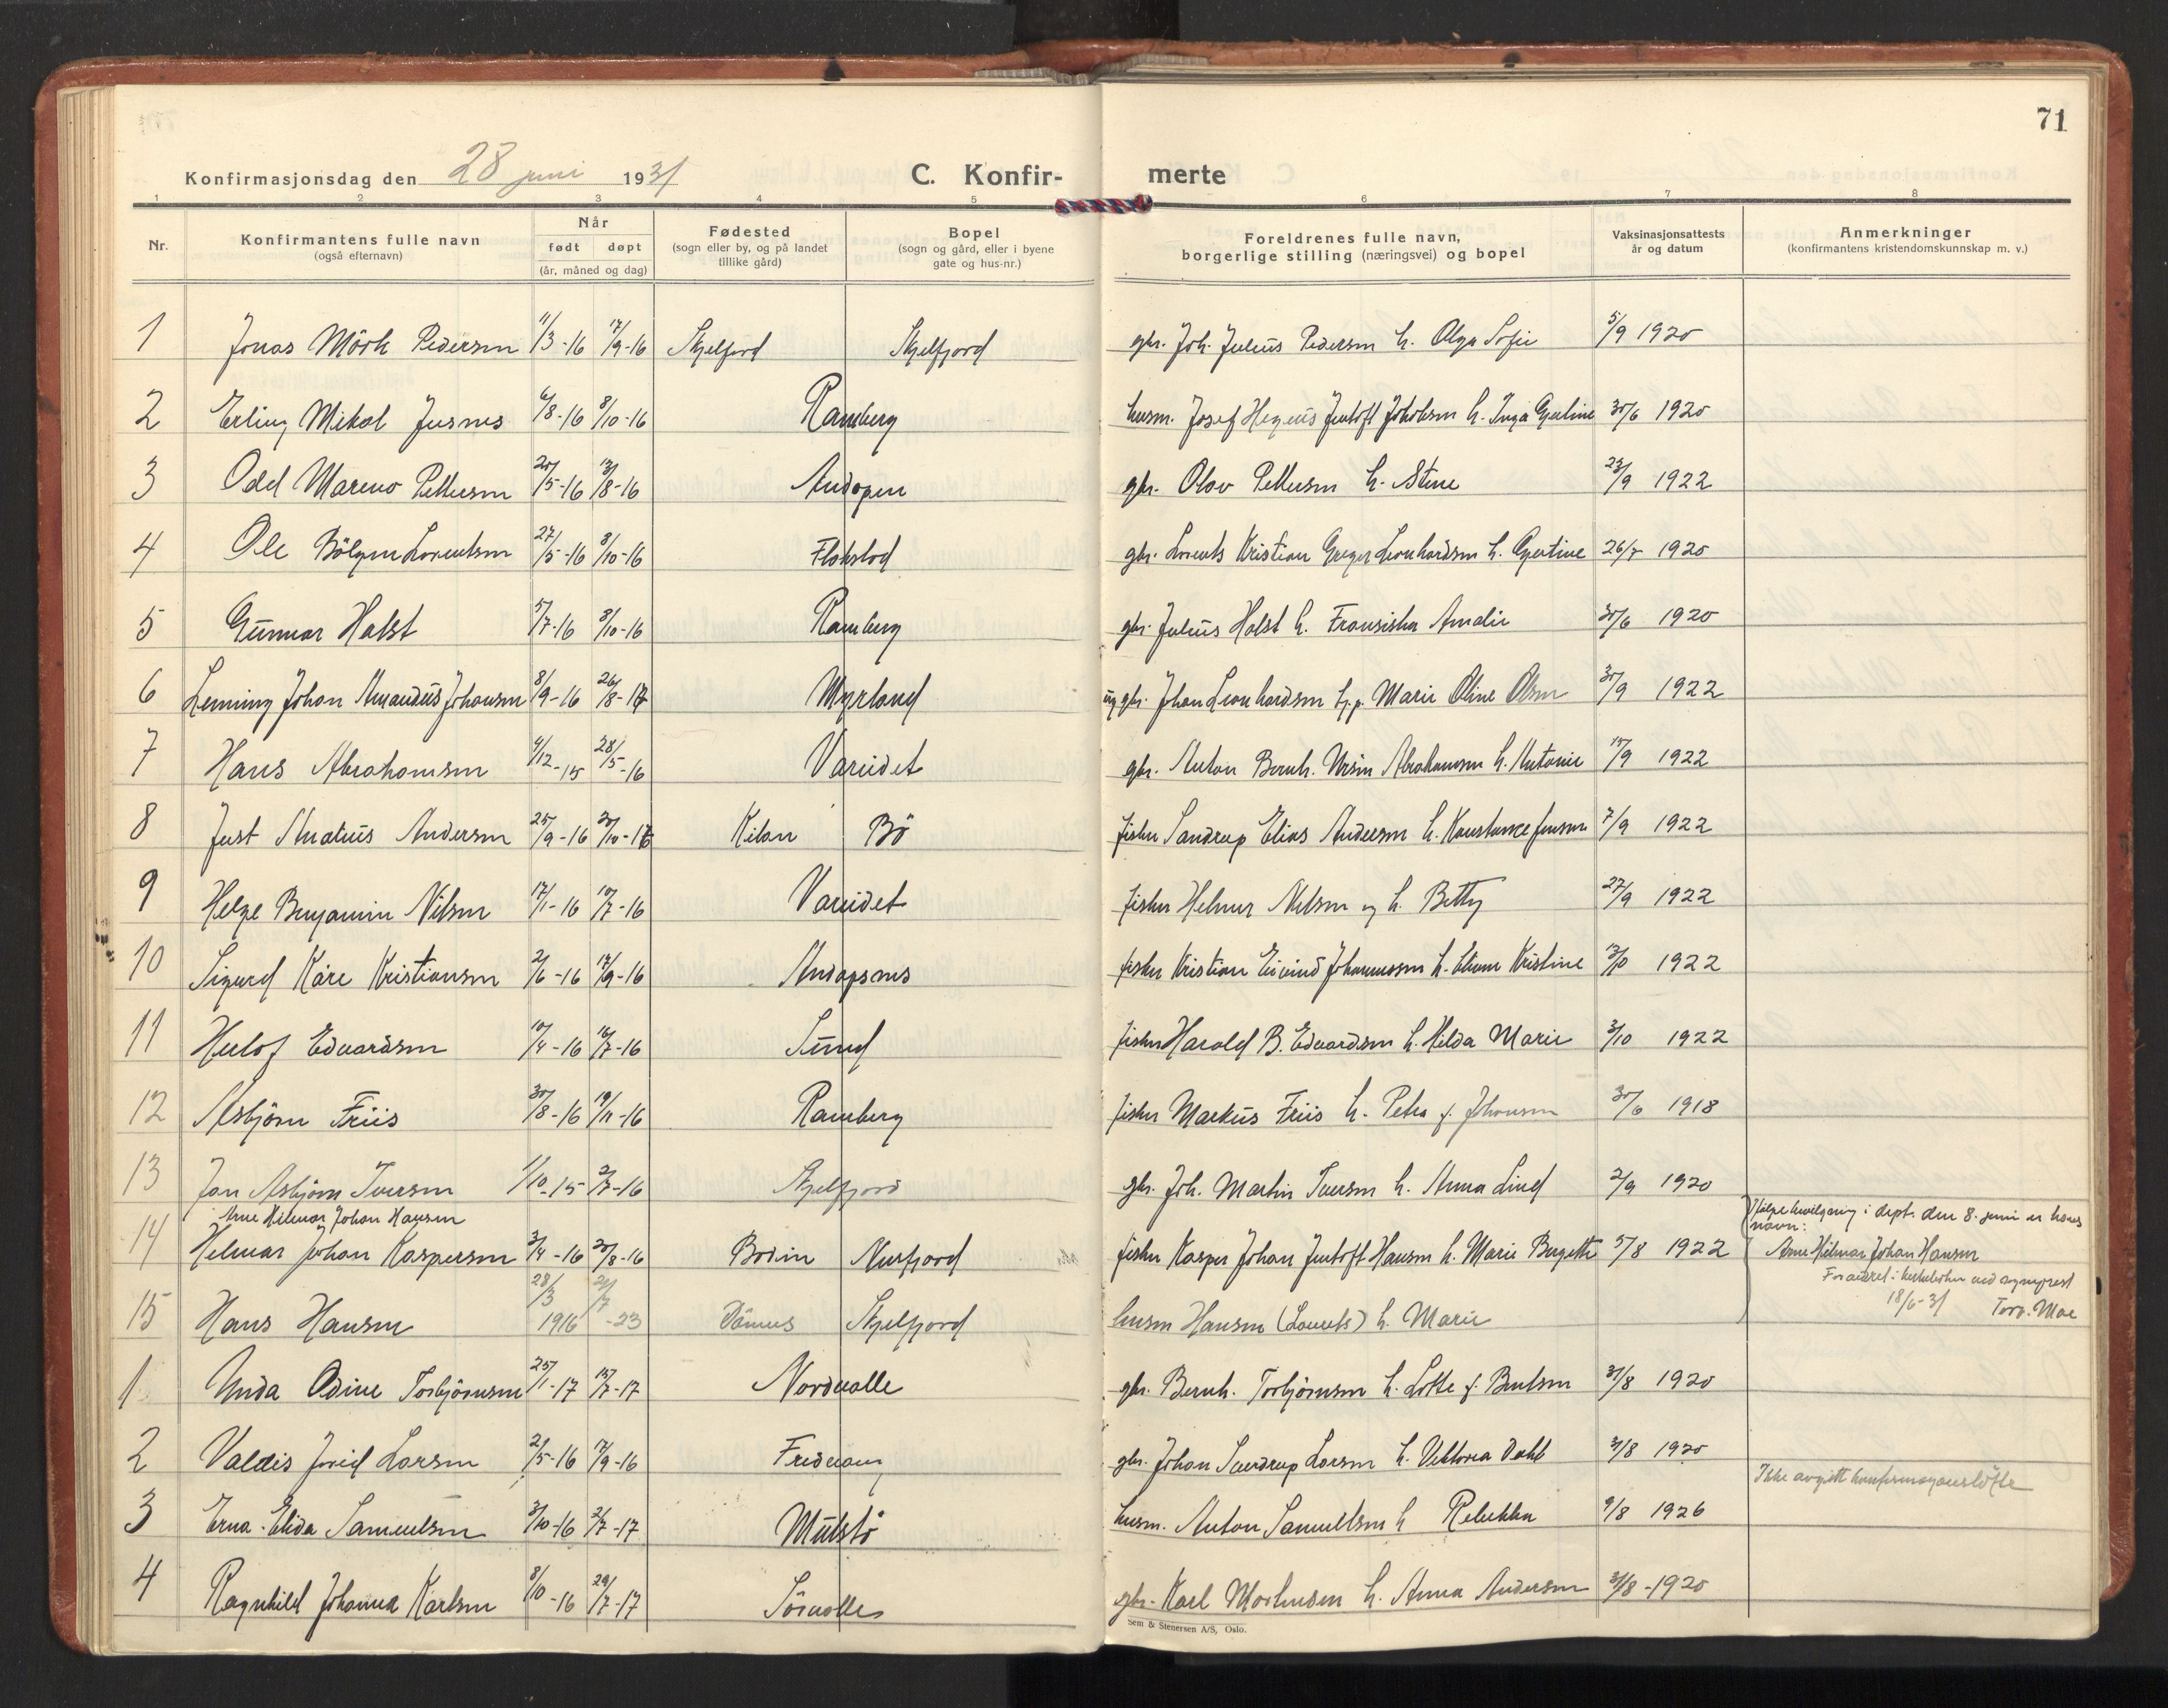 71
Konfirmasjonsdag den 28 juni 1931
C. Konfir- merte
1 2 3 4 5 6 7 8
Nr. Konfirmantens fulle navn (også efternavn) Når født døpt (år, måned og dag) Fødested (sogn eller by, og på landet tillike gård) Bopel (sogn og gård, eller i byene gate og hus-nr.) Foreldrenes fulle navn, borgerlige stilling (næringsvei) og bopel Vaksinasjonsattests år og datum Anmerkninger (konfirmantens kristendomskunnskap m. v.)
1 Jonas Mörk Pedersen 11/3-16 17/9-16 Skjelfjord Skjelfjord gbr. Joh. Julius Pedersen h. Olga Sofie 5/9 1920
2 Erling Mikal Jusnes 6/8-16 8/10-16 Ramberg husm. Josef Jentoft Jakobsen h. Inga 30/6 1920
3 Odd Mareno Pettersen 20/5-16 13/8-16 Andopen gbr. Olav Pettersen h. Stine 23/9 1922
4 Ole Lorentsen 27/5-16 8/10-16 Flakstad gbr. Lorents Kristian Greger Leonhardsen h. Gjertine 26/7 1920
5 Gunnar Holst 5/7-16 8/10-16 Ramberg gbr. Julius Holst h. Fransiska Amalie 30/6 1920
6 Lenning Johan Amandus Johansen 8/9-16 26/8-17 Myrland ug gbr. Johan Leonhardsen h. p. Marie Oline Olsen 30/9 1922
7 Hans Abrahamsen 4/12-15 28/5-16 Vareidet gbr. Anton Bernh. Ursin Abrahamsen h. Antonie 15/9 1922
8 Just Anatius Andersen 25/9-16 Kilan Bö fisker Sandrup Elias Andersen h. Konstance Jensen 7/9 1922
9 Helge Benjamin Nilsen 17/1-16 10/7-16 Vareidet fisker Helmer Nilsen og h. Betty 27/9 1922
10 Sigurd Kåre Kristiansen 2/6-16 17/9-16 Andopsnes fisker Kristian Eivind Johannessen h. Kristine 1922
11 Herlof Edvardsen 10/4-16 16/7-16 Sund fisker Harald B. Edvardsen h. Hilda Marie 3/10 1922
12 Asbjörn Friis 30/8-16 19/11-16 Ramberg fisker Markus Friis h. Petra f. Johansen 30/6 1918
13 Jan Asbjörn Iversen 1/10-15 2/7-16 Skjelfjord gbr. Joh. Martin Iversen h. Anna Lind 2/9 1920
Arne Hilmar Johan Hansen
14 Helmar Johan Kaspersen 3/4-16 20/8-16 Bodin Nusfjord fisker Kasper Johan Jentoft Hansen h. Marie Bergitte 5/8 1922
Ifölge bevilgning i dept. den 8. juni er hans
navn:
Arne Hilmar Johan Hansen
Forandret i kirkeboken ved sogneprest
18/6-31 Torv. Moe
15 Hans Hansen 28/3 1916 21/7 -23 Skjelfjord husm Hansen (Lorents) h. Marie
1 Unda Odine Torbjörnsen 25/1-17 15/7-17 Nordvalle gbr. Bernh. Torbjörnsen h. Lotte f. Berntsen 31/8 1920
2 Valdis Jovid Larsen 21/5-16 17/9-16 Fredvang gbr. Johan Sverdrup Larsen h. Viktoria Dahl 31/8 1920
Ikke avgitt konfirmasjonslöfte
3 Erna Elida Samuelsen 3/10-16 2/7-17 Mulstö husm. Anton Samuelsen h Rebekka 9/8 1926
4 Ragnhild Johanna Karlsen 8/10-16 29/7-17 Sörvalle gbr. Karl Mortensen h. Anna Andersen 31/8-1920
Sem & Stenersen A/S, Oslo.